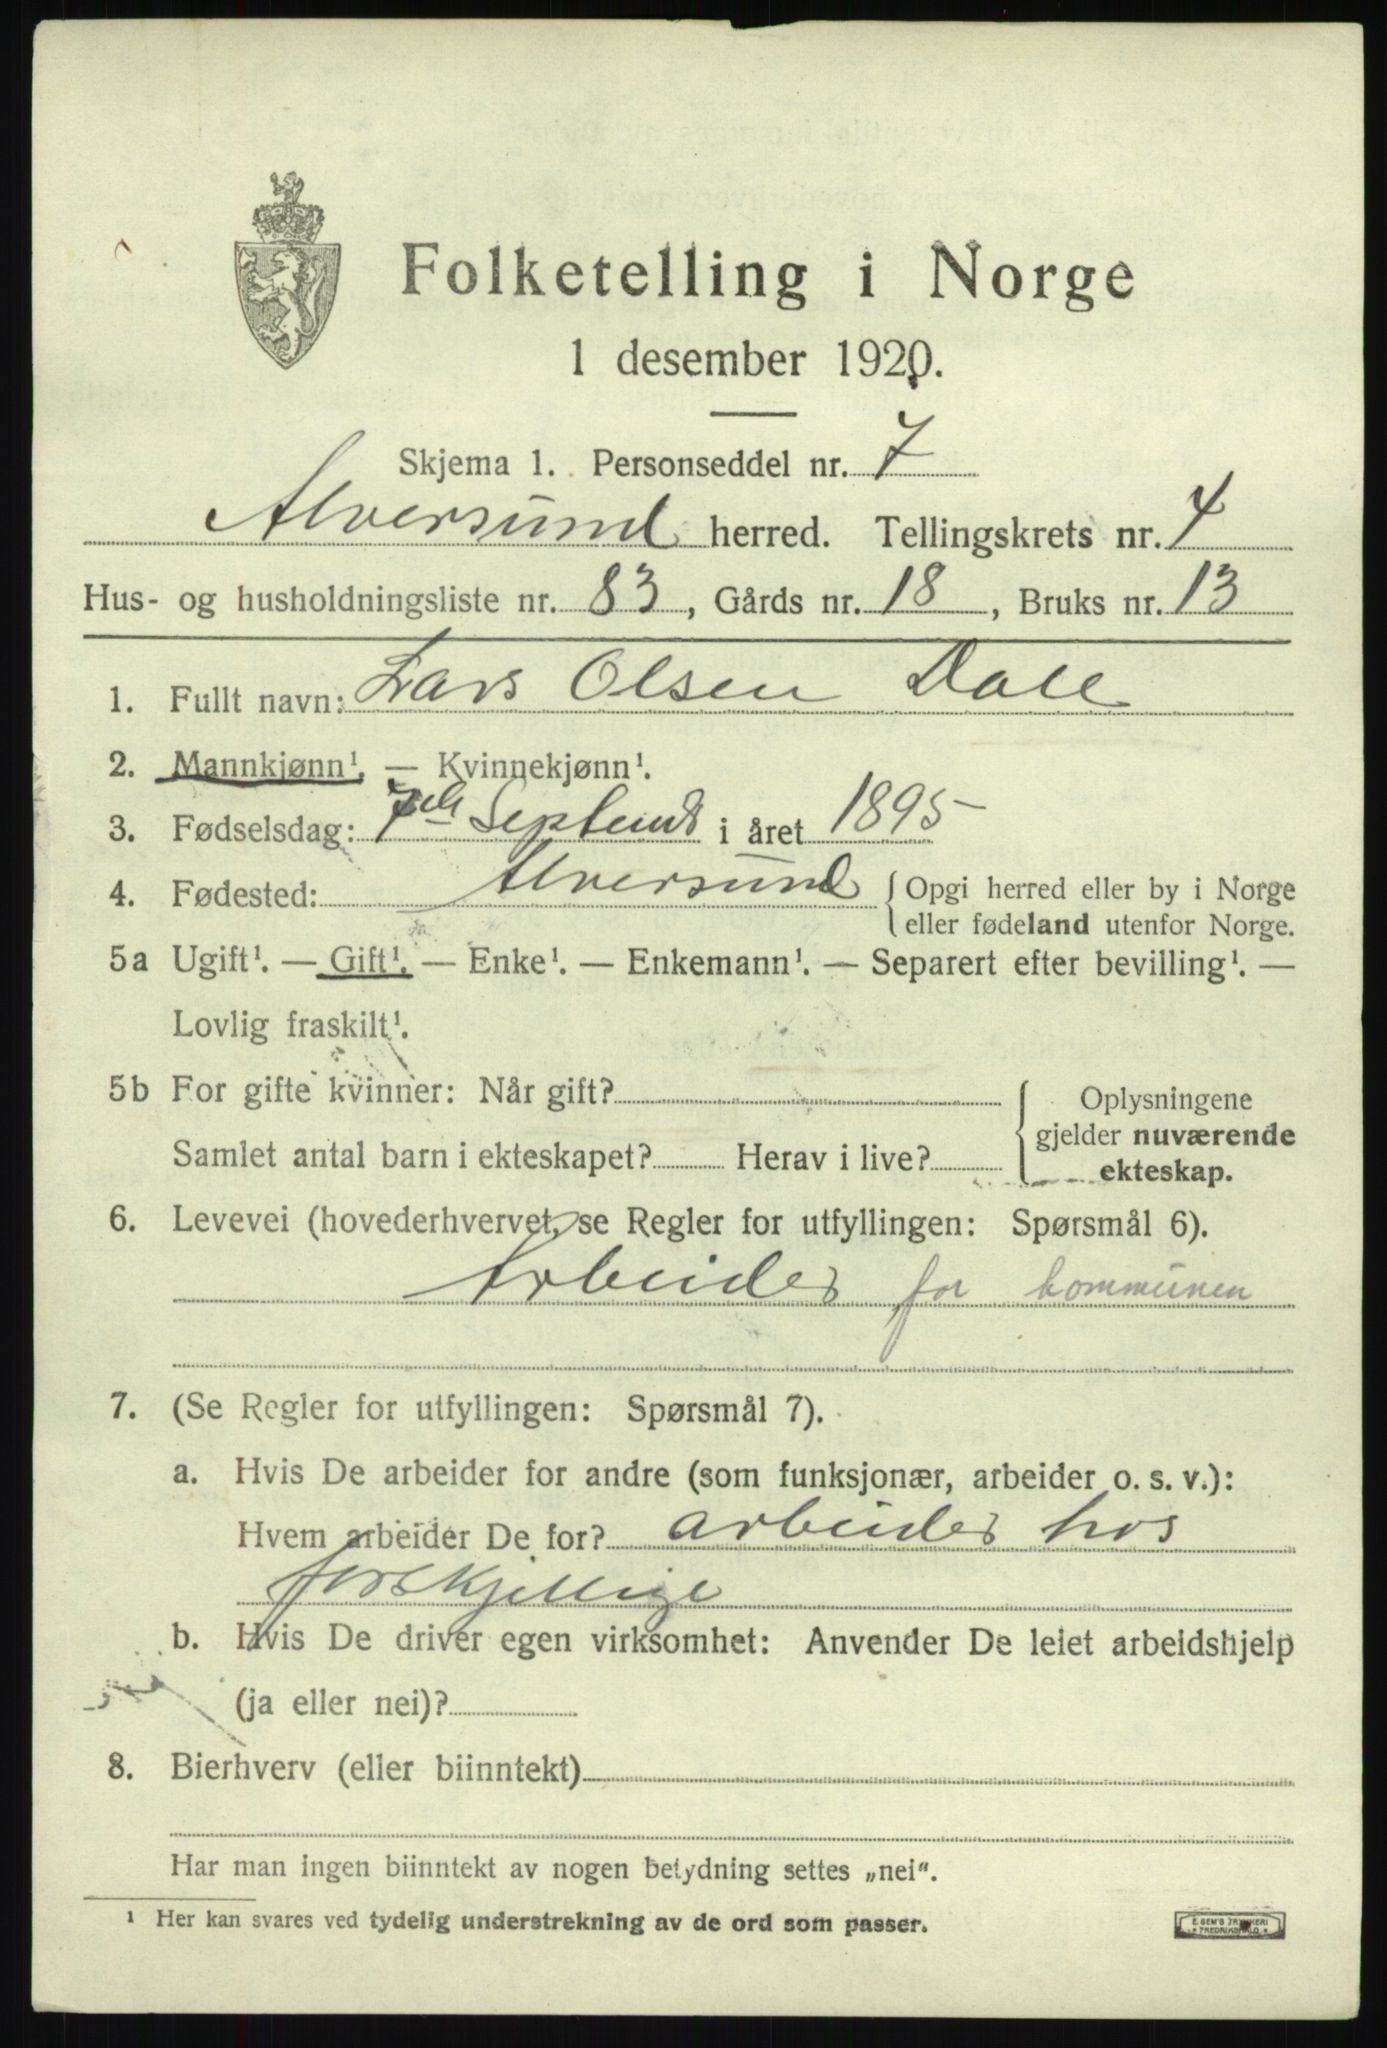 Folketelling i Norge
1 desember 1920.
Skjema 1. Personseddel nr. 7
Alversund herred. Tellingskrets nr. 4
Hus- og husholdningsliste nr. 83, Gårds nr. 18, Bruks nr. 13
1. Fullt navn: Lars Olsen Dale
2. Mannkjønn¹. — Kvinnekjønn¹.
3. Fødselsdag: 7de Septemb i året 1895
4. Fødested: Alversund { Opgi herred eller by i Norge
eller fødeland utenfor Norge.
5a Ugift¹. — Gift¹. — Enke¹. — Enkemann¹. — Separert efter bevilling¹. —
Lovlig fraskilt¹.
5b For gifte kvinner: Når gift? Oplysningene
gjelder nuværende
Samlet antal barn i ekteskapet? Herav i live? ekteskap.
6. Levevei (hovederhvervet, se Regler for utfyllingen: Spørsmål 6).
Arbeider for kommunen
7. (Se Regler for utfyllingen: Spørsmål 7).
a. Hvis De arbeider for andre (som funksjonær, arbeider o. s. v.):
Hvem arbeider De for? arbeider hos
forskjellige
b. Hvis De driver egen virksomhet: Anvender De leiet arbeidshjelp
(ja eller nei)?
8. Bierhverv (eller biinntekt)
Har man ingen biinntekt av nogen betydning settes „nei".
¹ Her kan svares ved tydelig understrekning av de ord som passer.
E. SEM'S TRYKKERI